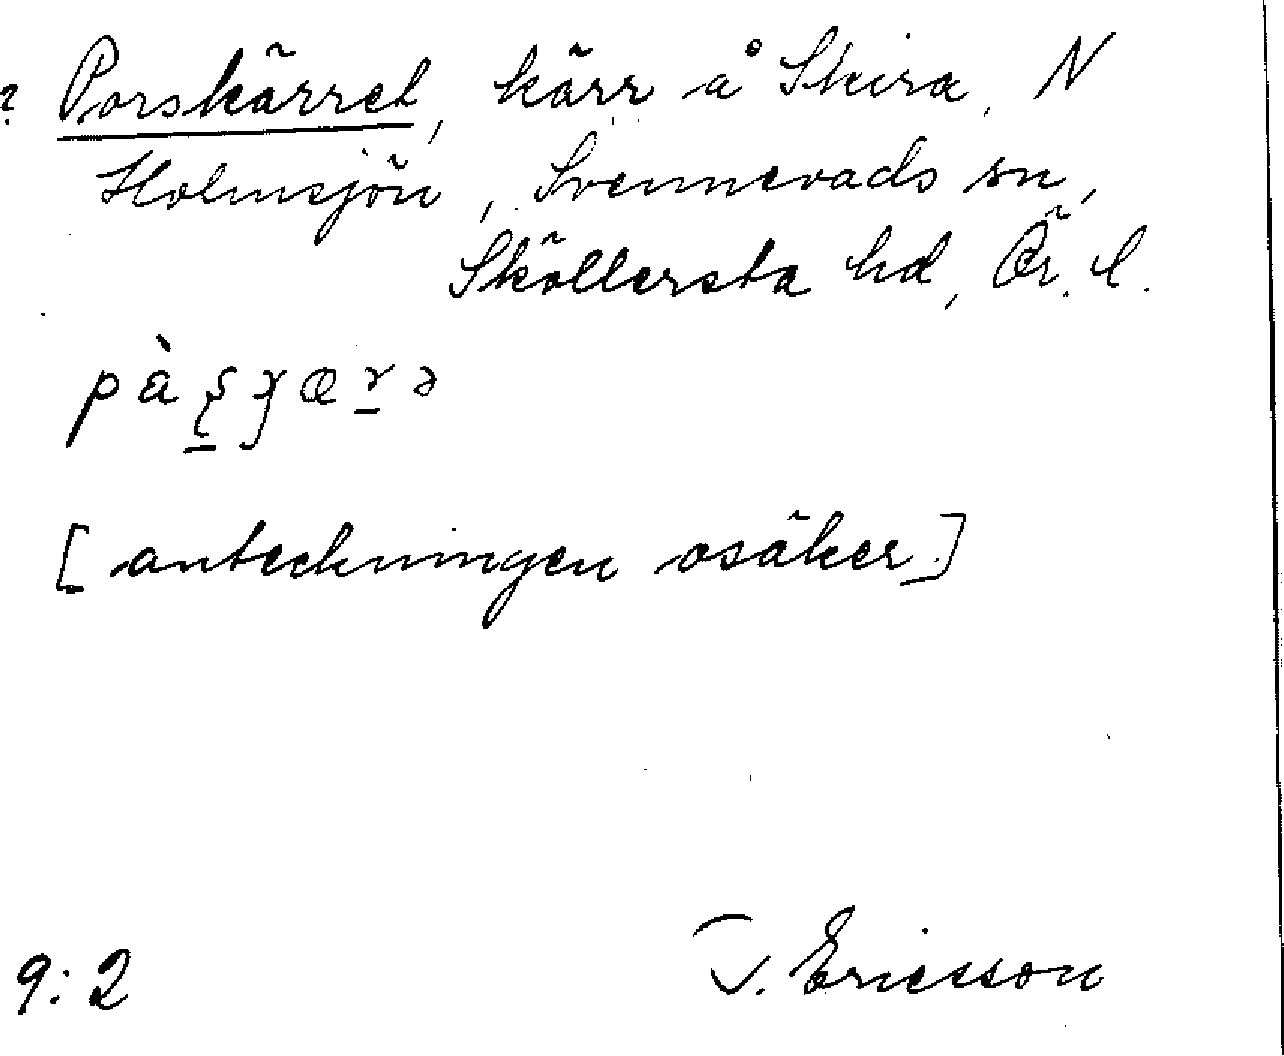 ? Porskärret, kärr å Skira, N
Holmsjön, Svennevads sn,
Sköllersta hd, Ör. l.
[anteckningen osäker]
9:2 T. Ericsson